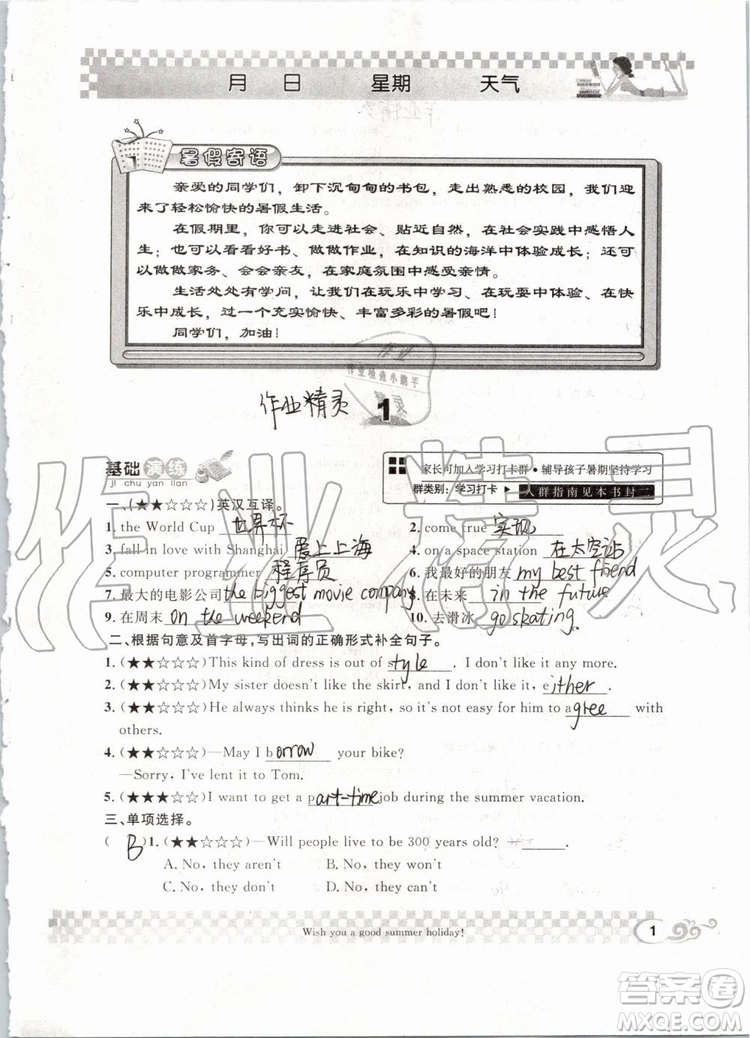 月 日 星期 天气
暑假寄语
亲爱的同学们，卸下沉甸甸的书包，走出熟悉的校园，我们迎
来了轻松愉快的暑假生活。
在假期里，你可以走进社会、贴近自然，在社会实践中感悟人
生；也可以看看好书、做做作业，在知识的海洋中体验成长；还可
以做做家务、会会亲友，在家庭氛围中感受亲情。
生活处处有学问，让我们在玩乐中学习、在玩耍中体验，在快
乐中成长，过一个充实愉快、丰富多彩的暑假吧！
同学们，加油！
作业
作业检查小助手
精灵
作业精灵
1
基础演练
ji chu yan lian
家长可加入学习打卡群·辅导孩子暑期坚持学习
群类别：学习打卡 入群指南见本书封二
一、(★★☆☆☆)英汉互译。
1. the World Cup 世界杯 2. come true 实现
3. fall in love with Shanghai 爱上上海 4. on a space station 在太空站
5. computer programmer 程序员 6. 我最好的朋友 my best friend
7. 最大的电影公司 the biggest movie company 8. 在未来 in the future
9. 在周末 on the weekend 10. 去滑冰 go skating
二、根据句意及首字母，写出词的正确形式补全句子。
1. (★★☆☆☆)This kind of dress is out of style. I don't like it any more.
2. (★★☆☆☆)My sister doesn't like the skirt, and I don't, either.
3. (★★☆☆☆)He always thinks he is right, so it's not easy for him to agree with
others.
4. (★★☆☆☆)—May I borrow your bike?
—Sorry, I've lent it to Tom.
5. (★★☆☆☆)I want to get a part-time job during the summer vacation.
三、单项选择。
( B )1. (★★☆☆☆)—Will people live to be 300 years old?
A. No, they aren't B. No, they won't
C. No, they don't D. No, they can't
Wish you a good summer holiday!
1
作业精灵
答案圈
MXQE.COM